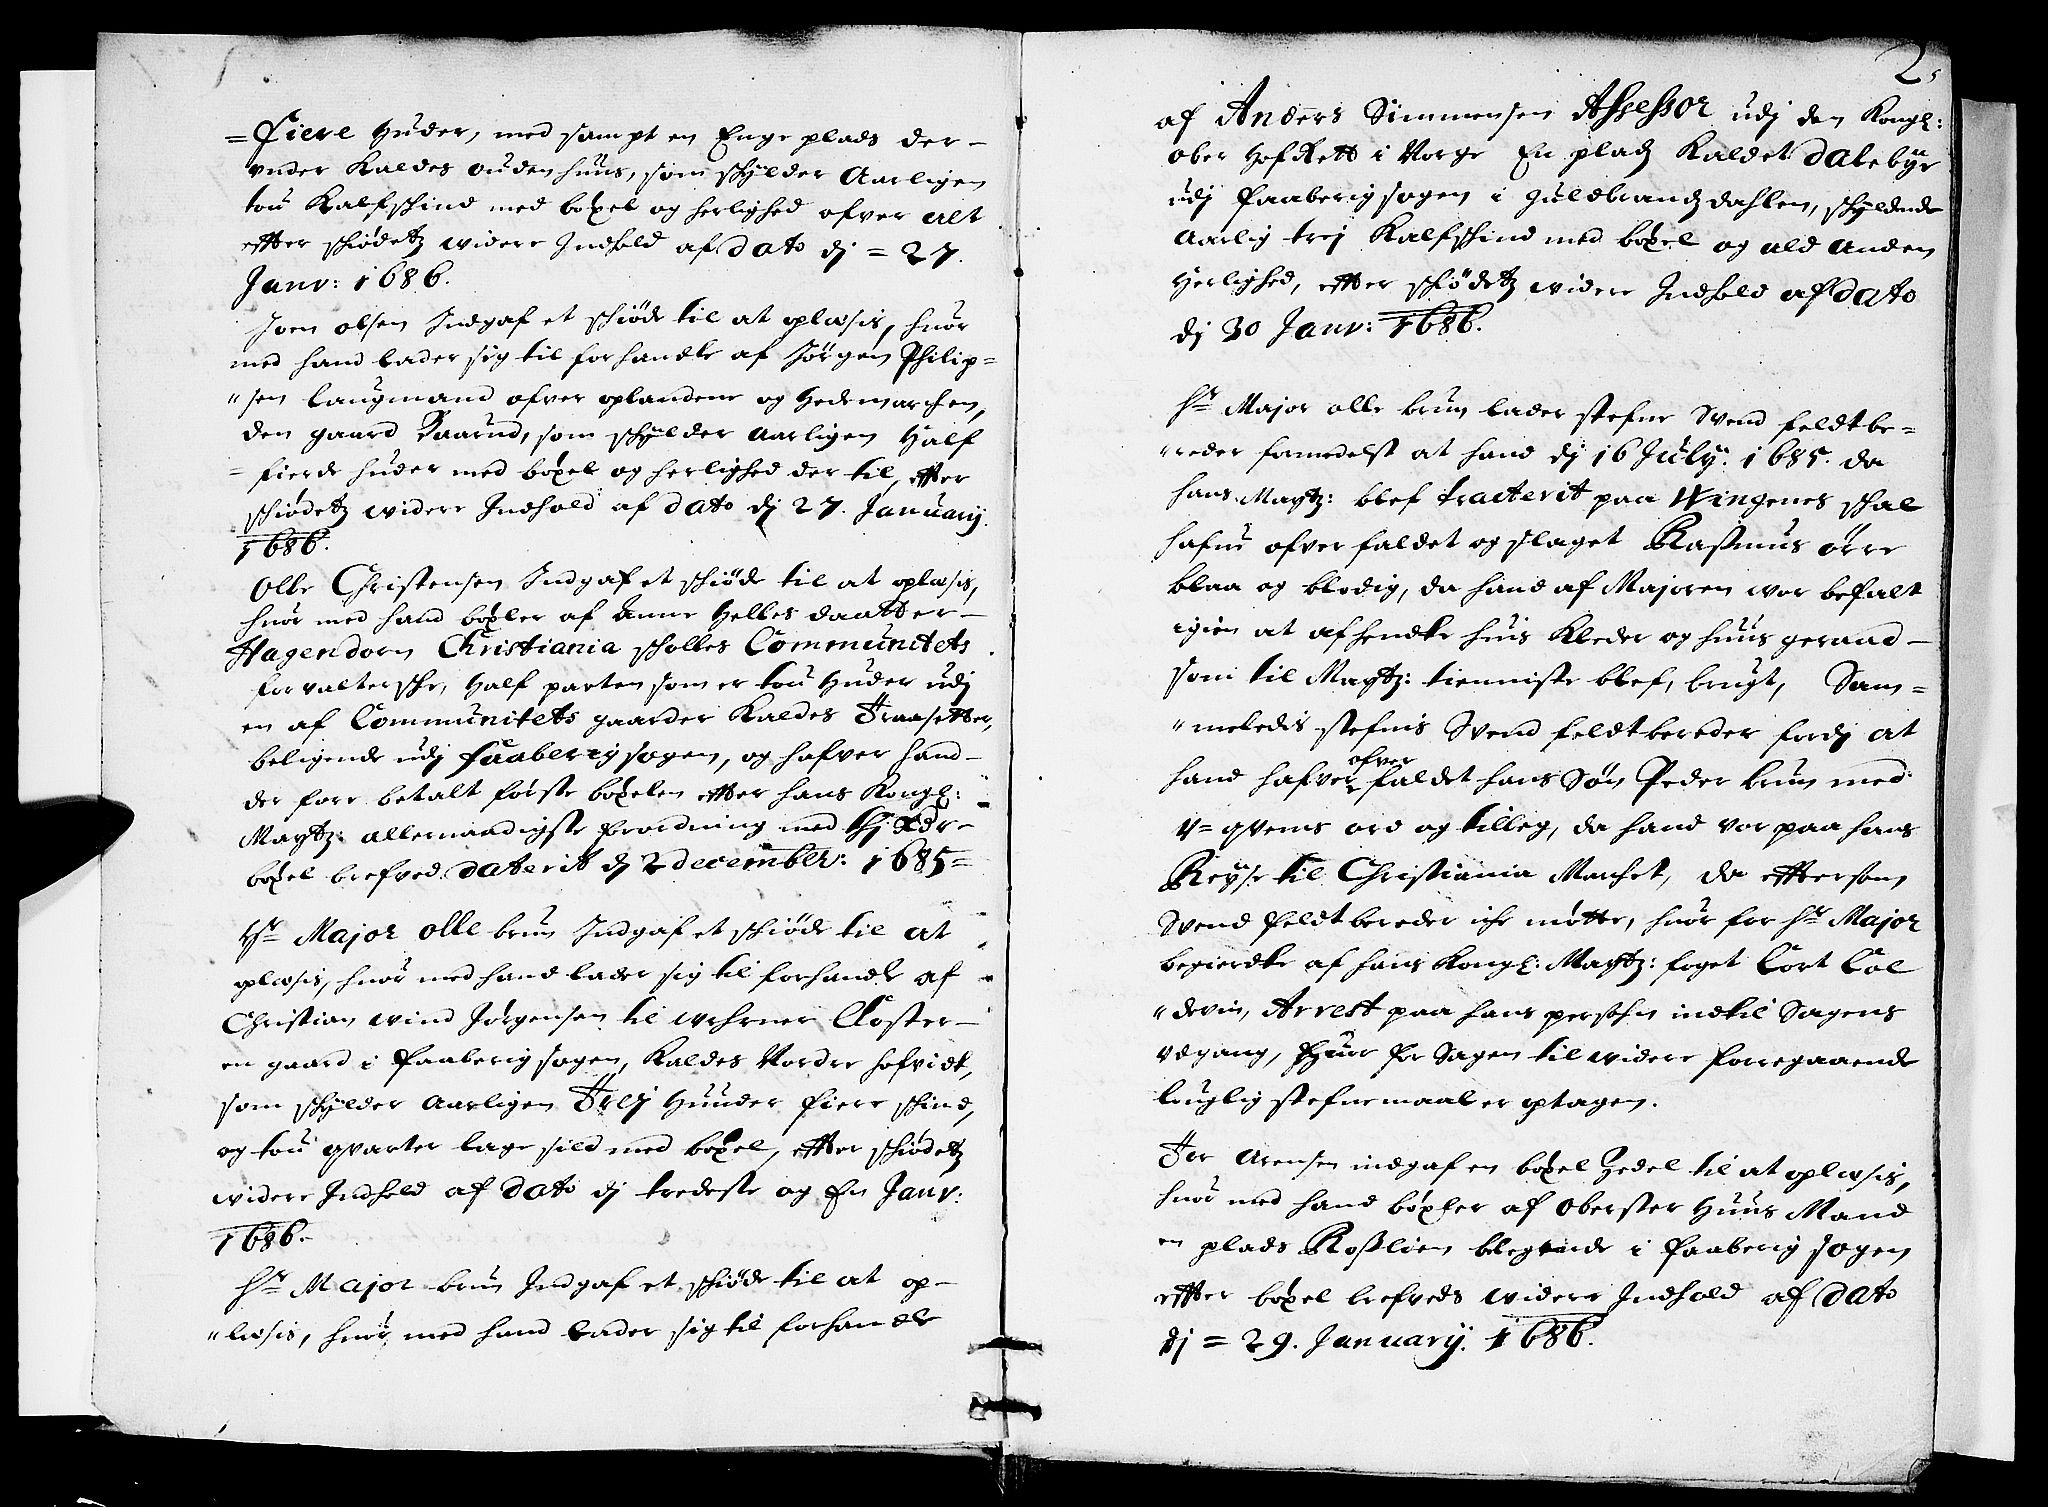 = Fiere Huder, med sampt en Enge plads der-
under Kaldes ouden huus, som schylder Aarligen
tou Kalfschind med böxel og herlighed ofver alt
efter schiödetz widere Indhold af dato dj = 27.
Janv: 1686.
Joen olsen Indgaf et schiöde til at oplæsis, huor
med hand lader sig til forhandle af Jörgen Philip=
"sen laugmand ofver oplandene og Hedemarchen,
den gaard Baarud, som schylder Aarligen Half
= fierde huder med böxel og herlighed der til, efter
schiödetz widere Indhold af dato dj 27. January.
1686.
Olle Christensen Indgaf et schiöde til at oplæsis,
huor med hand böxler af Anne Helles daatter-
Hagendorn Christiania scholles Communitets
forvaltersche, Half parten som er tou Huder udj
en af Communitets gaarder Kaldes Traasetter,
beligende udj Faaberig sogen, og hafver hand-
der fore betalt förste böxelen efter hans Kongl:
Maytz: allernaadigste forordning med
böxel brefved daterit dj 2 december: 1685=
Hr Major olle brun Indgaf et schiöde til at
oplæsis, huor med hand lader sig til forhandle af
Christian wind Jörgensen til wehrner Closter-
en gaard i Faaberig sogen, Kaldes Nordre hofvidt,
som schylder Aarligen Trej Huuder fiere schind,
og tou qvarter lage sild med böxel, efter schiödetz
widere Indhold af dato dj tredeste og En Janv:
1686.-
Hr Major brun Indgaf et schiöde til at op-
"læsis, huor med hand lader sig til forhandle
2
af Anders Simmensen Assessor udj den Kongl:
ober HofRett i Norge En pladz Kaldet Dalebÿe
udj Faaberig sogen i Guldbrandz dahlen, schyldende
Aarlig trej Kalfschind med böxel og ald Anden
Herlighed, efter schiödetz widere Indhold af dato
dj 30 Janv: 1686.
Hr Major olle brun lader stefne Svend feldtbe=
"reder formedelst at hand dj 16 July: 1685. da
hans Maytz: blef tracterit paa Wingenes schal
hafue ofver faldet og slaget Rasmus örre
blaa og blodig, da hand af Majoren wor befalt
igien at afhendte huis Kleder og huus geraad-
som til Maytz: tienniste blef, brugt, Sam=
"meledis stefnis Svend feldtbereder fordj at
hand hafver ofver faldet hans Sön Peder brun med
v= qvems ord og tilleg, da hand vor paa hans
Reyse til Christiania Marchet, da effter som
Svend feldtbereder iche mötte, huor for Hr Major
begierdte af hans Kongl: Maytz: foget Cort Col
"devin, Arrest paa hans persohn indtil Sagens
vdgang, for Sagen til widere forregaaende
louglig stefnemaal er optagen.
Tor Arensen indgaf en böxel Zedel til at oplæsis,
huor med hand böxler af Oberster Huus Mand
en plads Rosslien belegende i Faaberig sogen
effter böxel brefveds widere Indhold af dato
dj = 29. January. 1686.